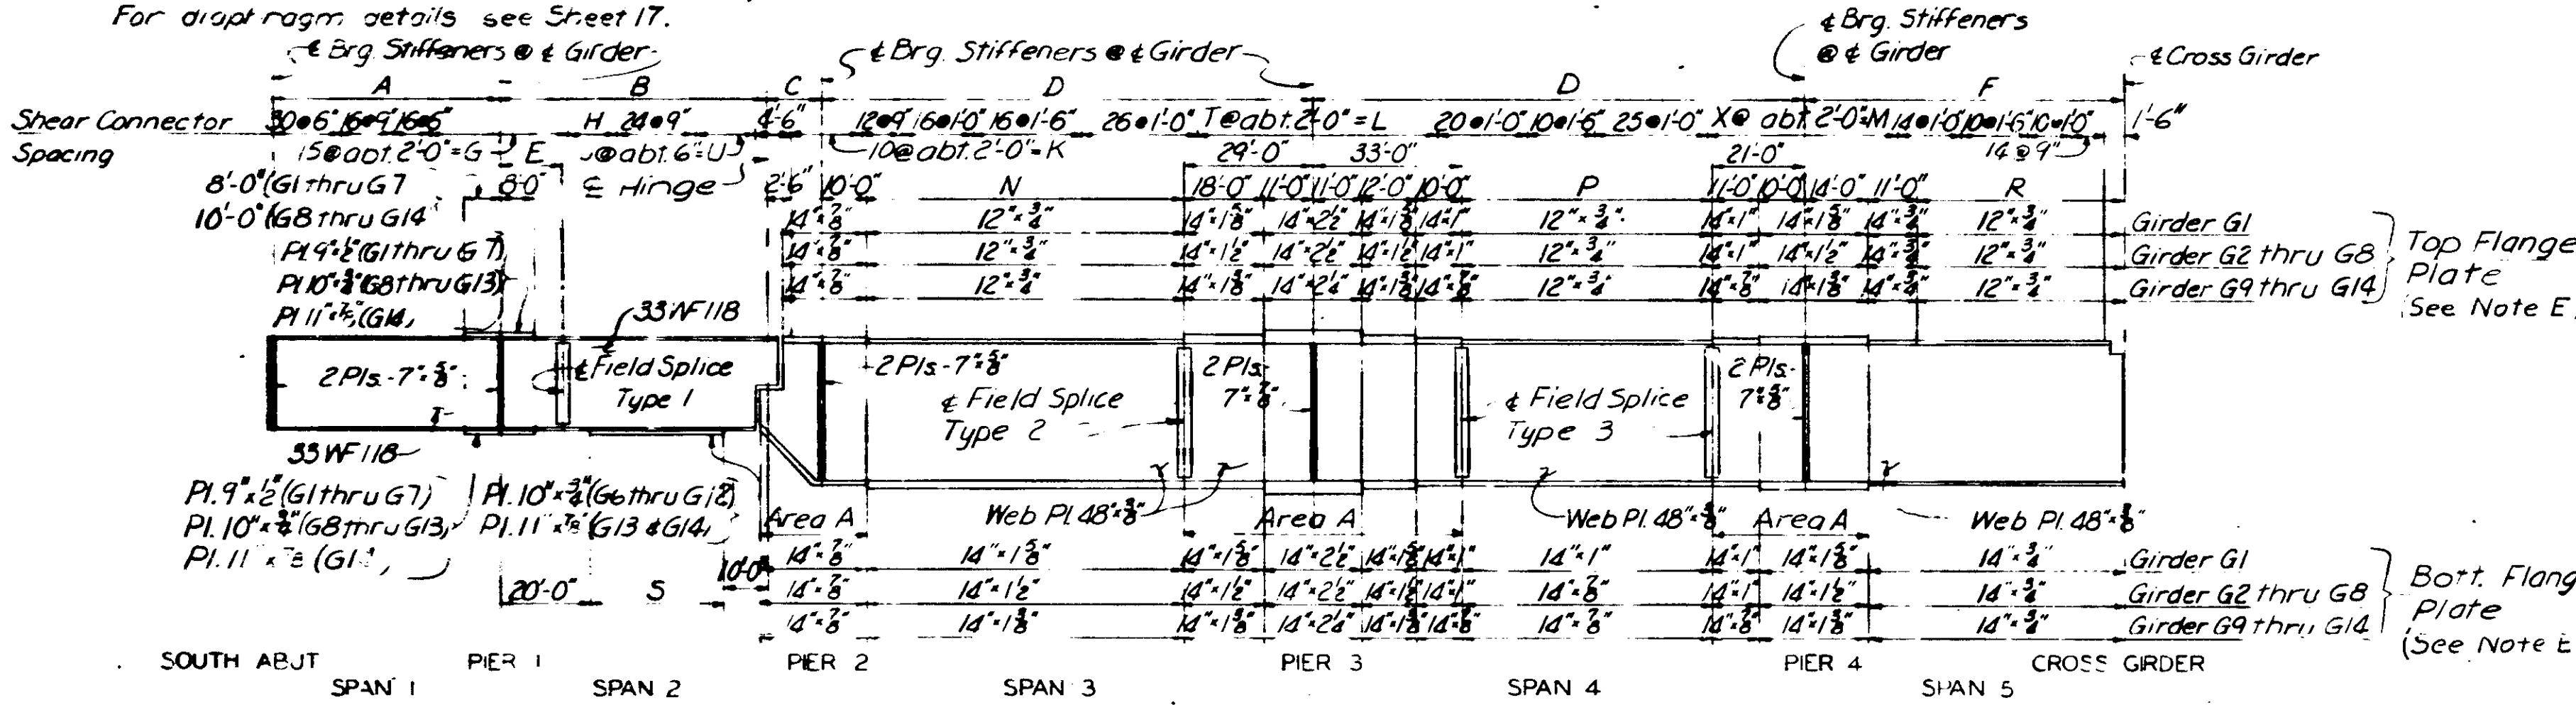 For diaphragm details see Sheet 17.
℄ Brg. Stiffeners @ ℄ Girder
℄ Brg. Stiffeners @ ℄ Girder
℄ Brg. Stiffeners
@ ℄ Girder
℄ Cross Girder
A B C D D F
Shear Connector
Spacing
30@6" 16@9" 16@6" H 24@9" 4'-6" 12@9" 16@1'-0" 16@1'-6" 26@1'-0" T@abt.2'-0"=L 20@1'-0" 10@1'-6" 25@1'-0" X@ abt 2'-0"=M 14@1'-0" 10@1'-6" 10@1'-0" 1'-6"
15@abt.2'-0"=G E J@abt.6"=U 10@abt.2'-0"=K 29'-0" 33'-0" 21'-0" 14@9"
8'-0" (G1 thru G7 8'-0" ℄ Hinge 2'-6" 10'-0" N 18'-0" 11'-0" 11'-0" 12'-0" 10'-0" P 11'-0" 10'-0" 14'-0" 11'-0" R
10'-0" (G8 thru G14
14"x7/8" 12"x3/4" 14"x1 5/8" 14"x2 1/2" 14"x1 5/8" 14"x1" 12"x3/4" 14"x1" 14"x1 5/8" 14"x3/4" 12"x3/4" Girder G1
14"x7/8" 12"x3/4" 14"x1 1/2" 14"x2 1/2" 14"x1 1/2" 14"x1" 12"x3/4" 14"x1" 14"x1 1/2" 14"x3/4" 12"x3/4" Girder G2 thru G8
14"x7/8" 12"x3/4" 14"x1 3/8" 14"x2 1/4" 14"x1 3/8" 14"x7/8" 12"x3/4" 14"x7/8" 14"x1 3/8" 14"x3/4" 12"x3/4" Girder G9 thru G14
Top Flange
Plate
(See Note E
Pl. 9"x1/2" (G1 thru G7)
Pl. 10"x3/4" (G8 thru G13)
Pl. 11"x7/8" (G14)
33WF118
2 Pls.-7"x5/8"
℄ Field Splice
Type 1
2 Pls.-7"x5/8"
℄ Field Splice
Type 2
2 Pls.-
7"x7/8"
℄ Field Splice
Type 3
2 Pls.-
7"x5/8"
33WF118
Pl. 9"x1/2" (G1 thru G7)
Pl. 10"x3/4" (G8 thru G13)
Pl. 11"x7/8"
Pl. 10"x3/4" (G6 thru G12)
Pl. 11"x7/8" (G13 & G14)
Area A Web Pl. 48"x3/8" Area A Web Pl. 48"x3/8" Area A Web Pl. 48"x3/8"
20'-0" S 10'-0"
14"x7/8" 14"x1 5/8" 14"x1 5/8" 14"x2 1/2" 14"x1 5/8" 14"x1" 14"x1" 14"x1" 14"x1 5/8" 14"x3/4" Girder G1
14"x7/8" 14"x1 1/2" 14"x1 1/2" 14"x2 1/2" 14"x1 1/2" 14"x1" 14"x7/8" 14"x1" 14"x1 1/2" 14"x3/4" Girder G2 thru G8
14"x7/8" 14"x1 3/8" 14"x1 3/8" 14"x2 1/4" 14"x1 3/8" 14"x7/8" 14"x7/8" 14"x7/8" 14"x1 3/8" 14"x3/4" Girder G9 thru G14
Bott. Flang
Plate
(See Note E
SOUTH ABUT PIER 1 PIER 2 PIER 3 PIER 4 CROSS GIRDER
SPAN 1 SPAN 2 SPAN 3 SPAN 4 SPAN 5